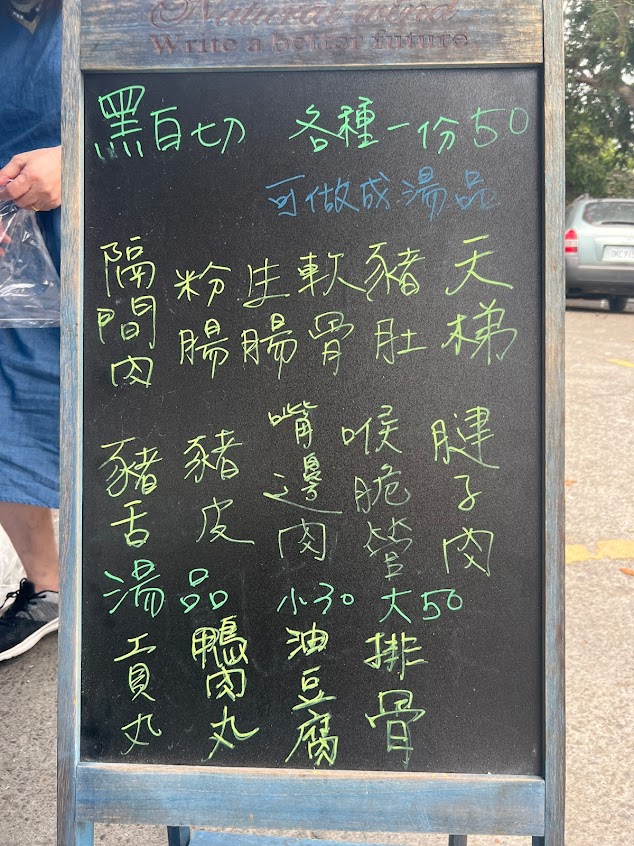 Natural wind
Write a better future
黑白切 各種一份50
可做成湯品
天梯
豬肚
軟骨
生腸
粉腸
隔間肉
腱子肉
喉脆管
嘴邊肉
豬皮
豬舌
湯品 小30 大50
排骨
油豆腐
鴨肉丸
工員丸